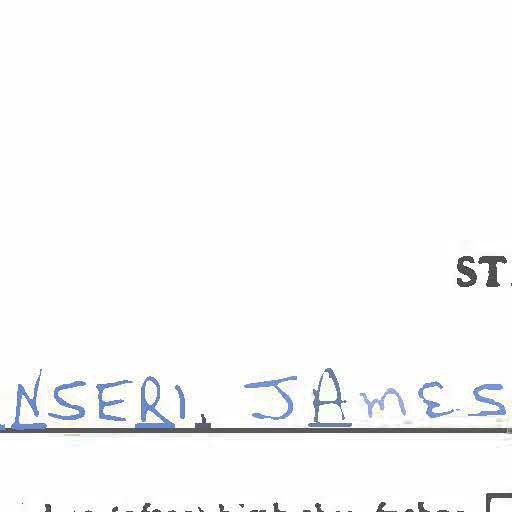 ST
NSERI. JAMES